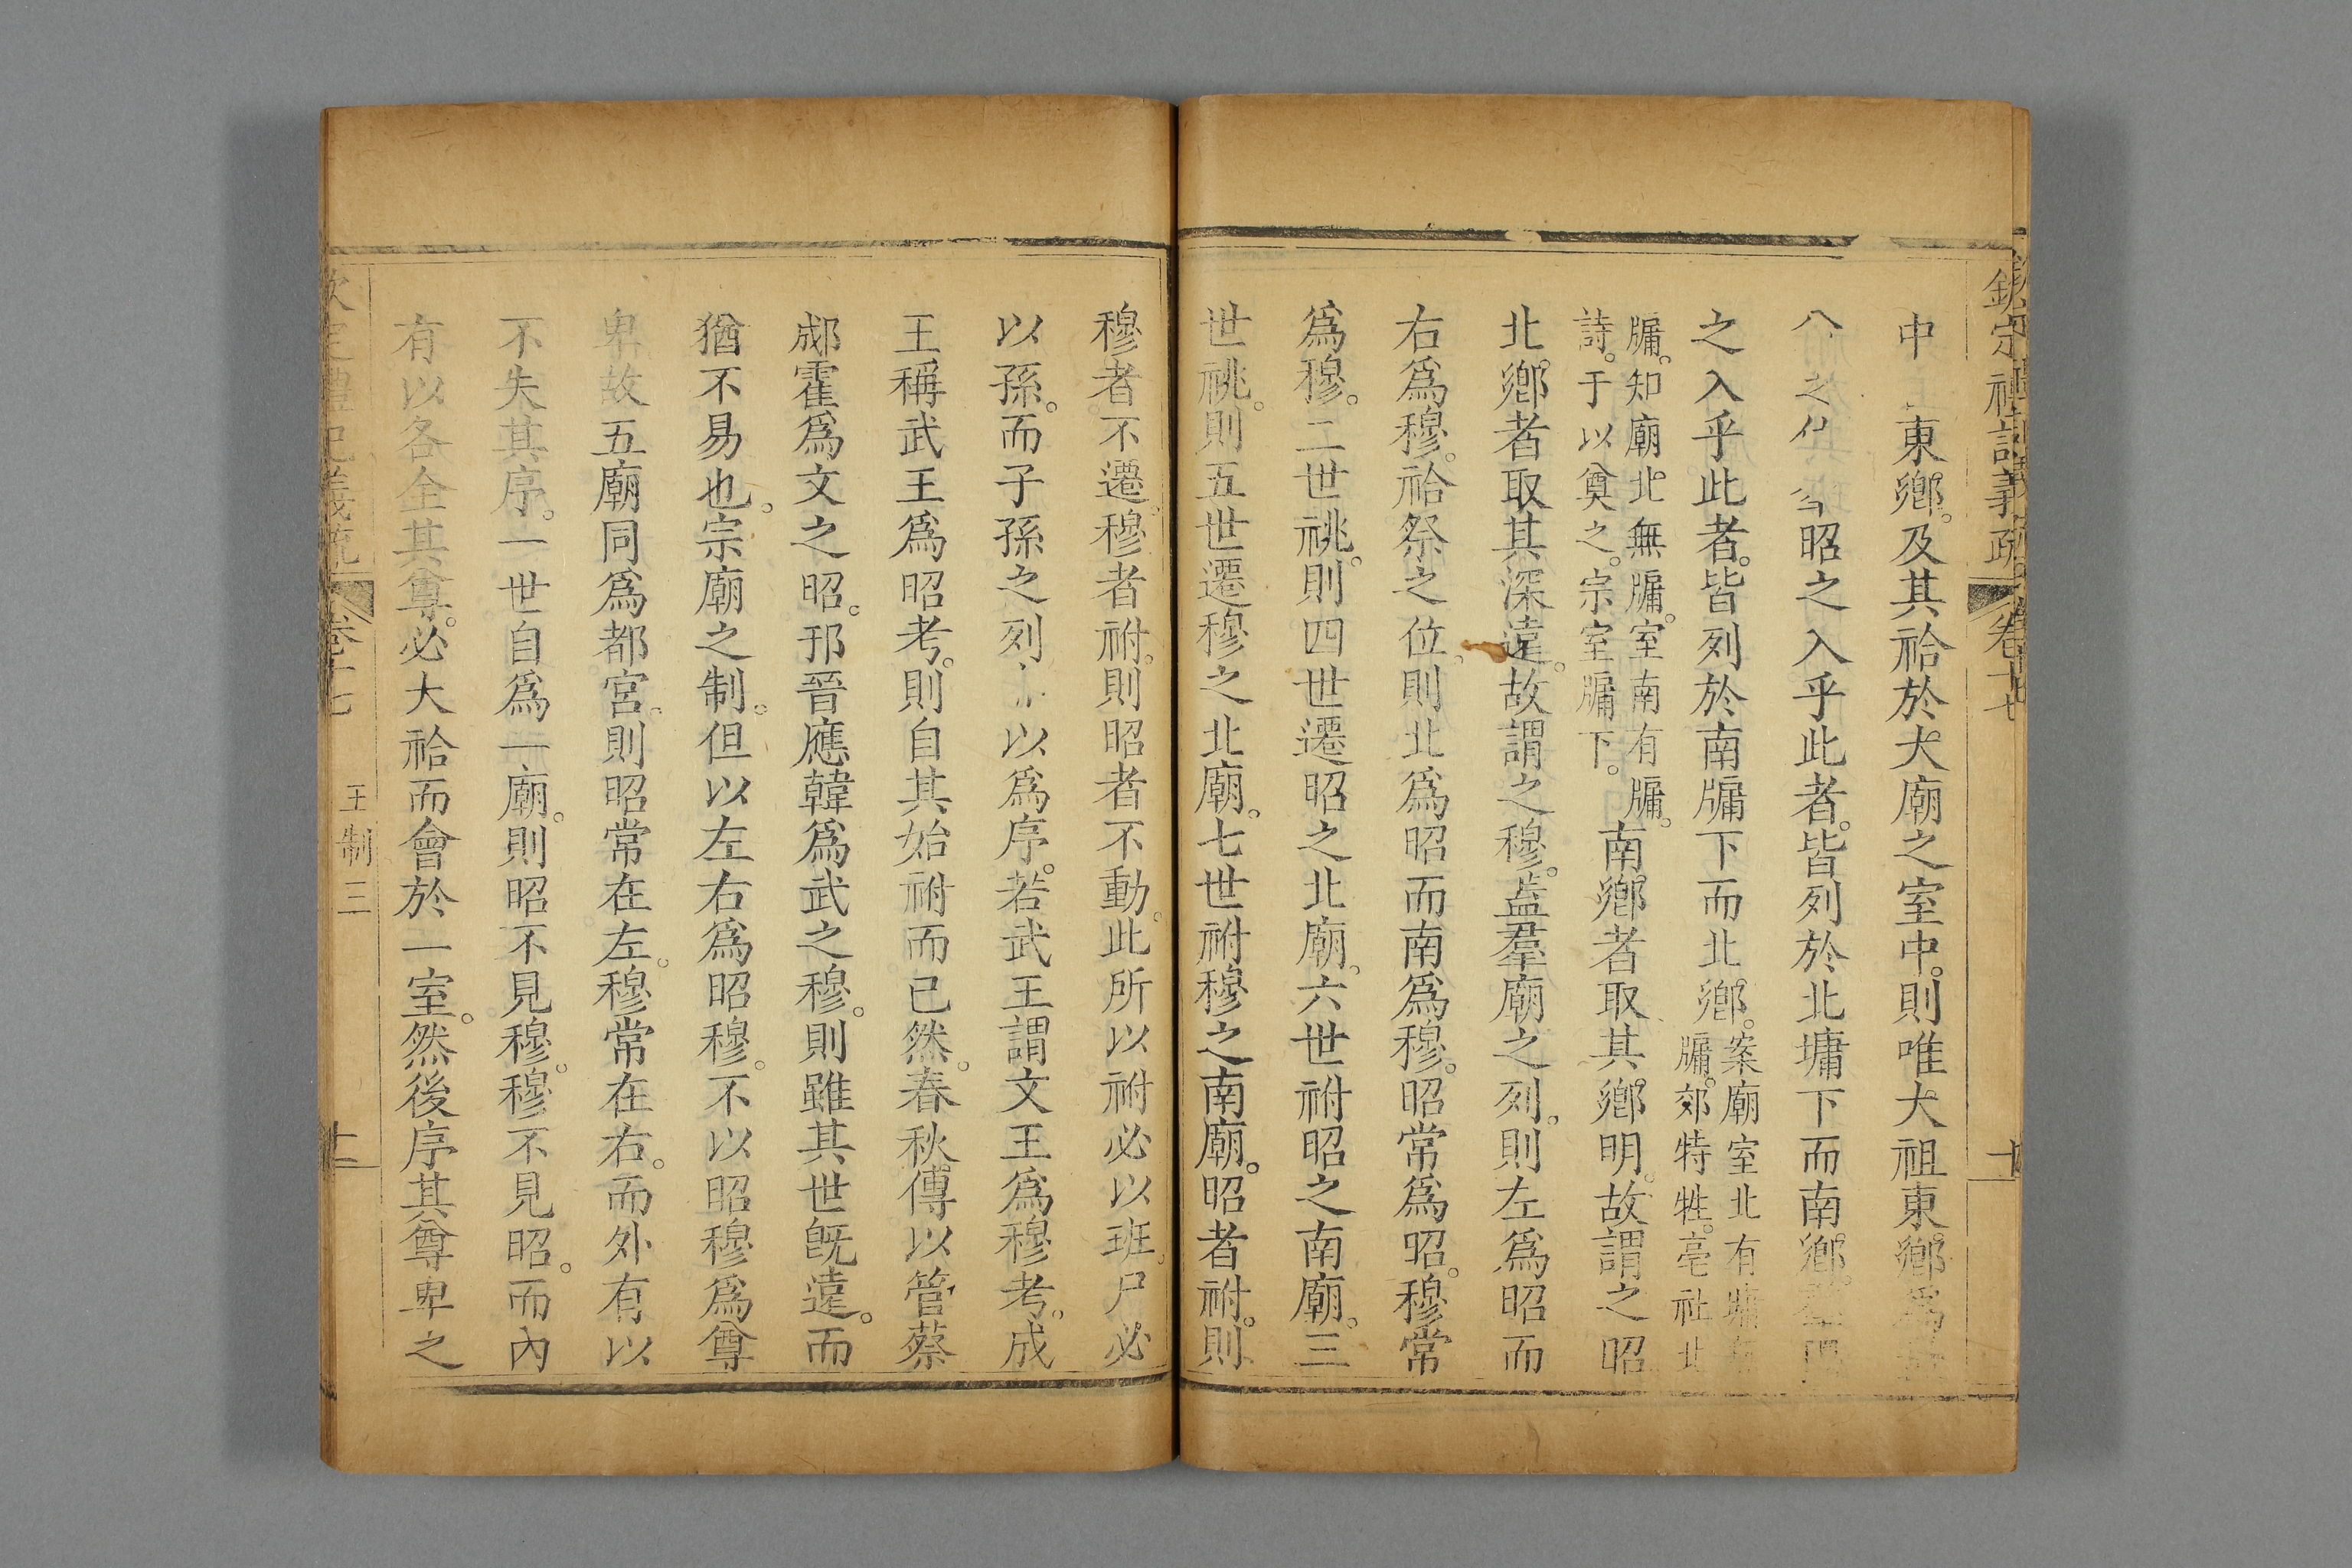 欽定禮記義疏 卷十七
中 東鄉。及其祫於大廟之室中。則唯大祖東鄉爲
之 昭之入乎此者。皆列於北墉下而南鄉。
之入乎此者。皆列於南牖下而北鄉。案廟室北有墉 牖。郊特牲。亳社北
牖。知廟北無牖。室南有牖。詩。于以奠之。宗室牖下。南鄉者取其鄉明。故謂之昭
北鄉者取其深遠。故謂之穆。葢羣廟之列。則左爲昭而
右爲穆。祫祭之位。則北爲昭而南爲穆。昭常爲昭。穆常
爲穆。二世祧。則四世遷昭之北廟。六世祔昭之南廟。三
世祧。則五世遷穆之北廟。七世祔穆之南廟。昭者祔。則
穆者不遷。穆者祔。則昭者不動。此所以祔必以班。尸必
以孫。而子孫之列 以爲序。若武王謂文王爲穆考。成
王稱武王爲昭考。則自其始祔而已然。春秋傳以管蔡
郕霍爲文之昭。邘晉應韓爲武之穆。則雖其世旣遠。而
猶不易也。宗廟之制。但以左右爲昭穆。不以昭穆爲尊
卑故五廟同爲都宮。則昭常在左。穆常在右。而外有以
不失其序。一世自爲一廟。則昭不見穆。穆不見昭。而內
有以各全其尊。必大祫而會於一室。然後序其尊卑之
欽定禮記義疏 卷十七 王制三 十一